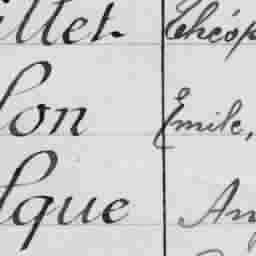 illet. Théop
lon Emile,
lque An